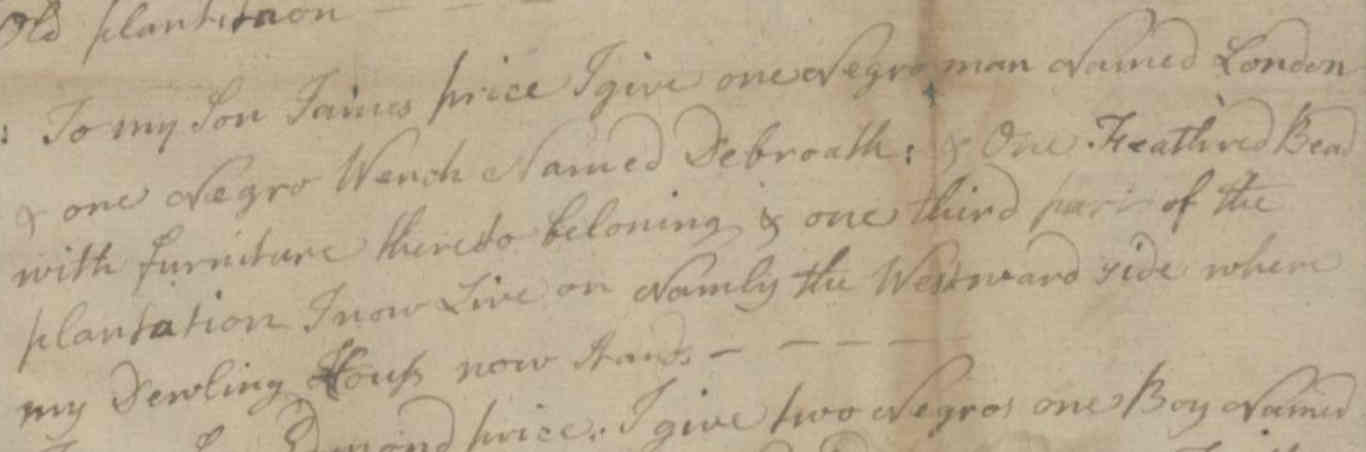 Old plantation - - -
: To my Son James price I give one Negro man Named London
& one Negro Wench Named Debroath: & One Feathered Bead
with furniture thereto beloning & one third part of the
plantation I now Live on Namly the Westward side where
my Dewling House now stands - - - - -
Edmond price. I give two Negros one Boy Named